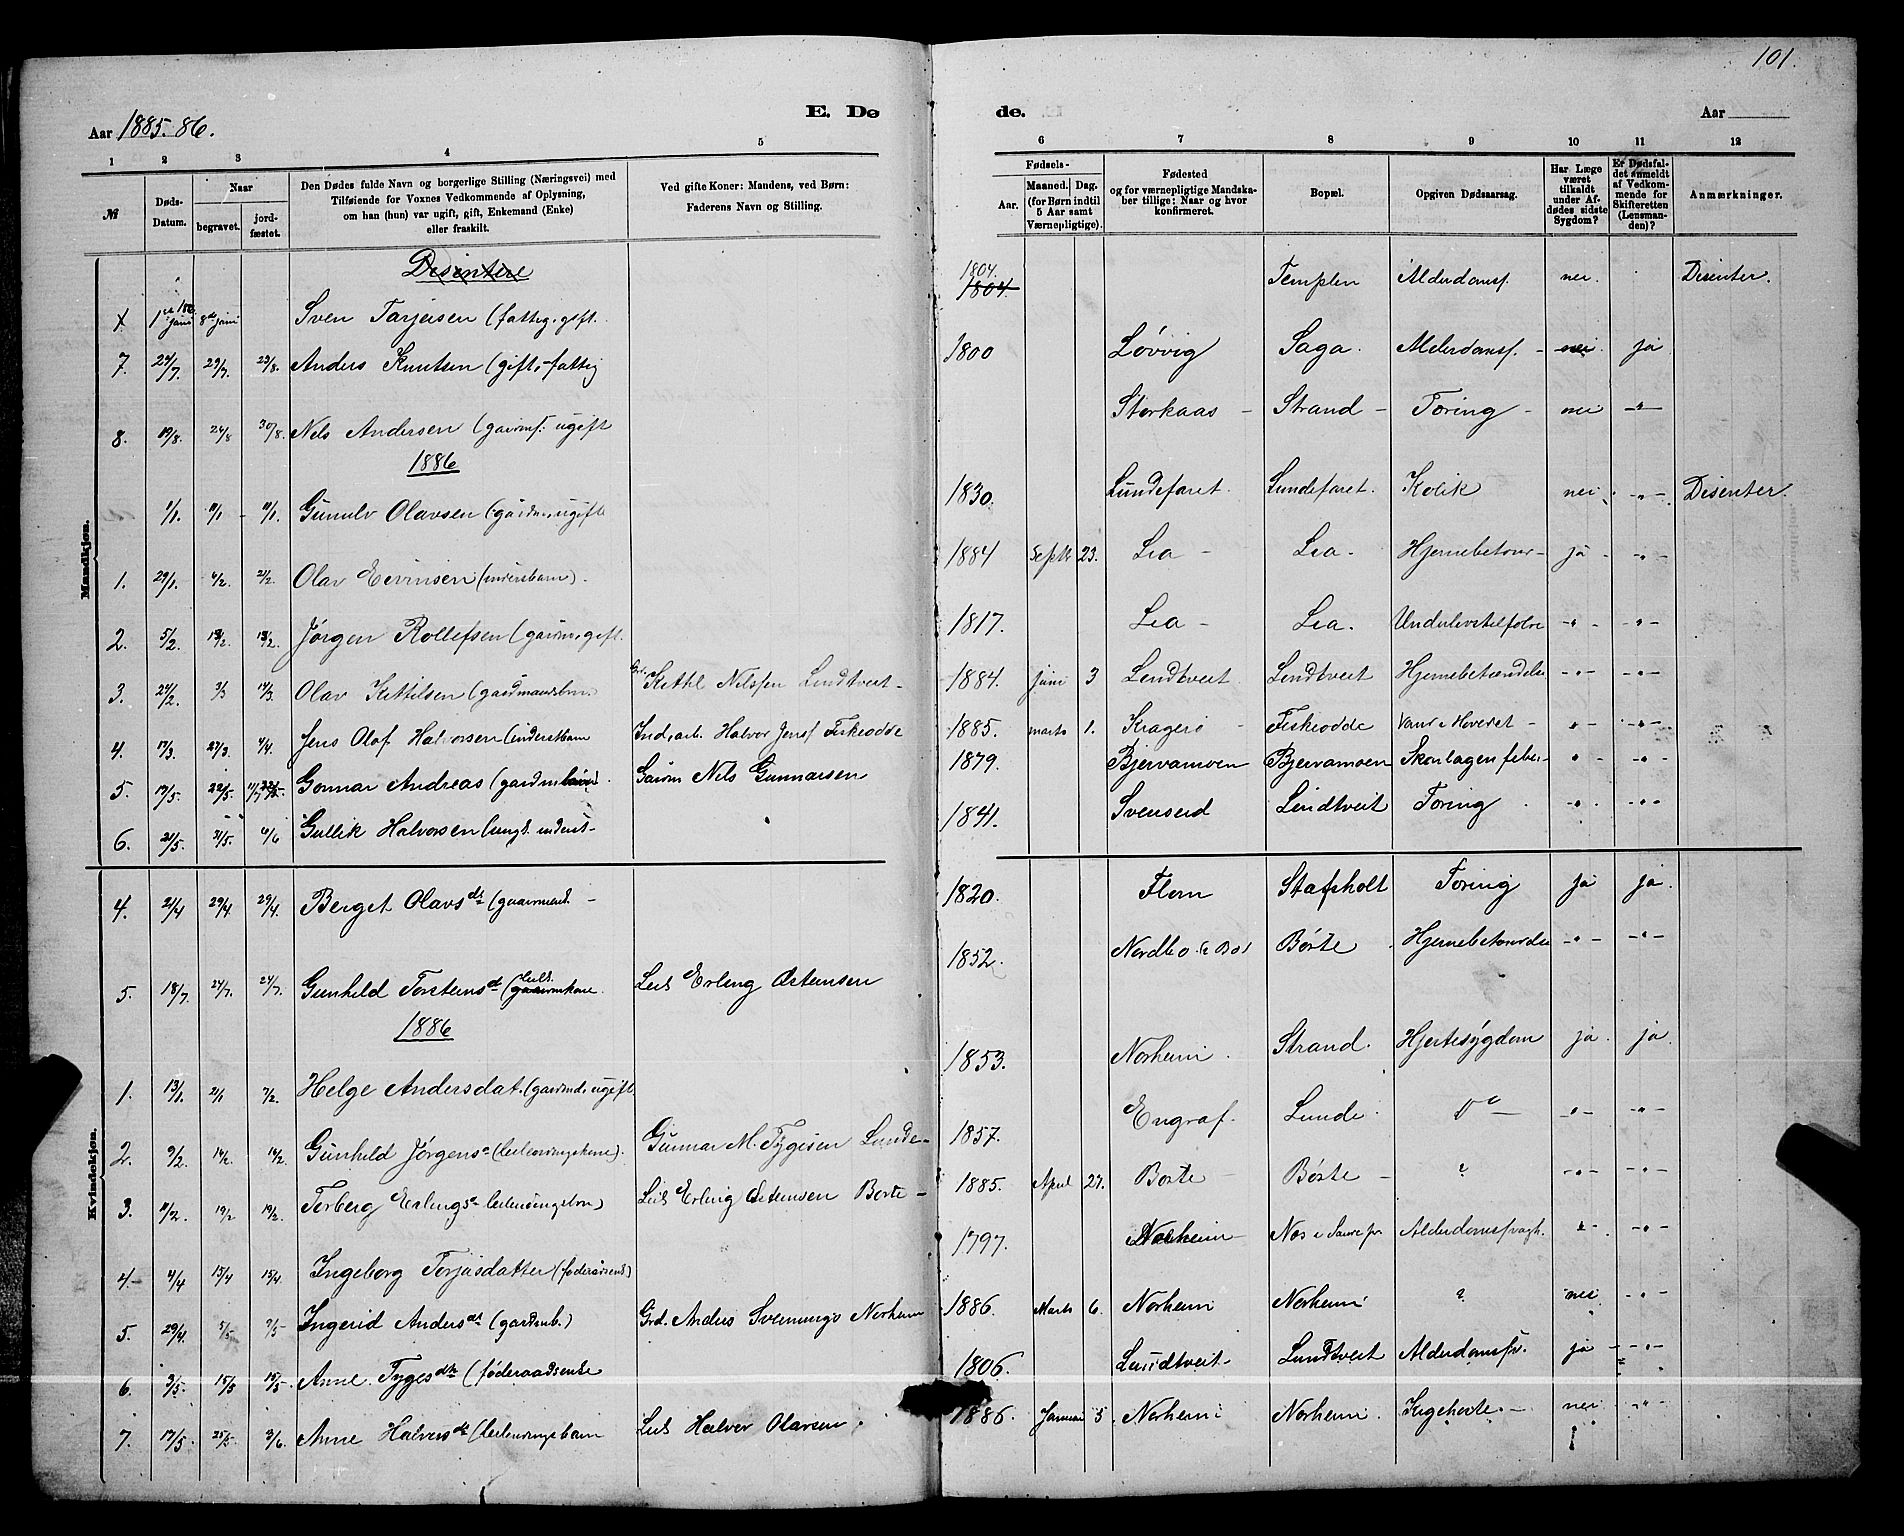 101.
Aar 1885-86.
E. Dø
de.
Aar
1 2 3 4 5 6 7 8 9 10 11 12
№
Døds-Datum.
Naar
begravet.
jord-fæstet.
Den Dødes fulde Navn og borgerlige Stilling (Næringsvei) med
Tilføiende for Voxnes Vedkommende af Oplysning,
om han (hun) var ugift, gift, Enkemand (Enke)
eller fraskilt.
Ved gifte Koner: Mandens, ved Børn:
Faderens Navn og Stilling.
Fødsels-
Aar.
Maaned. Dag.
(for Børn indtil
5 Aar samt
Værnepligtige).
Fødested
og for værnepligtige Mandska-
ber tillige: Naar og hvor
konfirmeret.
Bopæl.
Opgiven Dødsaarsag.
Har Læge
været
tilkaldt
under Af-
dødes sidste
Sygdom?
Er Dødsfal-
det anmeldt
af Vedkom-
mende for
Skifteretten
(Lensman-
den)?
Anmærkninger.
Mandkjøn.
Disentere
Sven Tarjeisen (fattig, gift. 1804. 1804. Templen Alderdomsf. nei. Disenter.
7. 29/7. 23/8. Anders Knutsen (gift,-fattig 1800 Løvvig Saga. Alderdomsf. nei. ja
8. 19/8. 24/8 30/8. Nels Andersen (gaarmf. ugift Storkaas - Strand - Tæring - nei -"-
1886
1/1. Gunulv Olavsen (gardm, ugift 1830. Lundefaret. Lundefaret. Kolik nei. -"- Disenter.
1. 29/1. 2/2. Olav Eevinsen (inderstbarn). 1884 Septbr 23. Lia - Lia. ja - -"-
2. 5/2. 13/2. 13/2. Jørgen Rollefsen (gaarm, gift. 1817. Lia - Lia. -"- -"-
3. 24/2. 3/3 14/3. Olav Kettilsen (gardmansbrn. Kittil Nilssen Lindtveit - 1884. juni 3 Lindtveit Lindtveit Hjernebetændelse -"- -"-
4. 17/3. 27/3 4/4. Jens Olaf Halvorsen (inderstbarn Ind, arb. Halvor Jensf Fiskeodde 1885. marts 1. Kragerø - Fiskeodde Vand i Hovedet - -"- -"-
5. 17/5. 22/5. Gonnar Andreas (gardm barn. Gaarm Nils Gunnarsen 1879. Bjervamoen Bjervamoen Skarlagensfeber - -"- -"-
6. 21/5. 31/5. 6/6 Gullik Halvorsen (ungk. inderst- 1841. Svenseid Lindtveit Tæring -"- -"-
Kvindekjøn.
4. 21/4 29/4 29/4. Berget Olavsdt (gaarmenk. - 1820. Flom Stafsholt Tæring ja ja.
5. 18/7. 24/7. 24/7. Gunhild Torsteinsdt (gaarmkone. Leil. Leil Erling Østensen 1852. Nordbo i Bø Børte Hjernebetændelse -"- -"-
1886
1. 13/1. 21/1 7/2. Helge Andersdat. (gaarmd, ugift. 1853. Norheim. Strand. Hjertesygdom ja. ja.
2. 9/2. 14/2. 14/2 Gunhild Jørgensd (leilendingskone). Gunnar M. Tygesen Lunde - 1857. Engraf. Lunde. Do - -"- -"-
3. 11/2. 19/2 19/2. Torberg Erlingsd leilendingsbrn) Leil Erling Østensen Børte - 1885. April 27. Børte - Børte - ? -"- -"-
4- 4/4 15/4 15/4. Ingeborg Torjusdatter (føderaadsenk) 1797. Norheim - Næs i Saude pr Alderdomssvagh. -"- -"-
5. 29/4. 5/5 9/5- Ingerid Andersdt (gardmb.) Grd. Anders Svenningss Norheim 1886. Marts 6. Norheim Norheim ? nei. -"-
6. 9/5. 15/5 15/5. Anne Tygesdtr (føderaadsenke 1806. Lundtveit - Lundtveit Alderdomsfv. ja - -"-
7. 17/5. 25/5- 3/6. Anne Halvorsdtr (leilendingsbarn Leil Halvor Olavsen. 1886. Januar 5. Norheim Norheim. Kighoste. - nei -"-